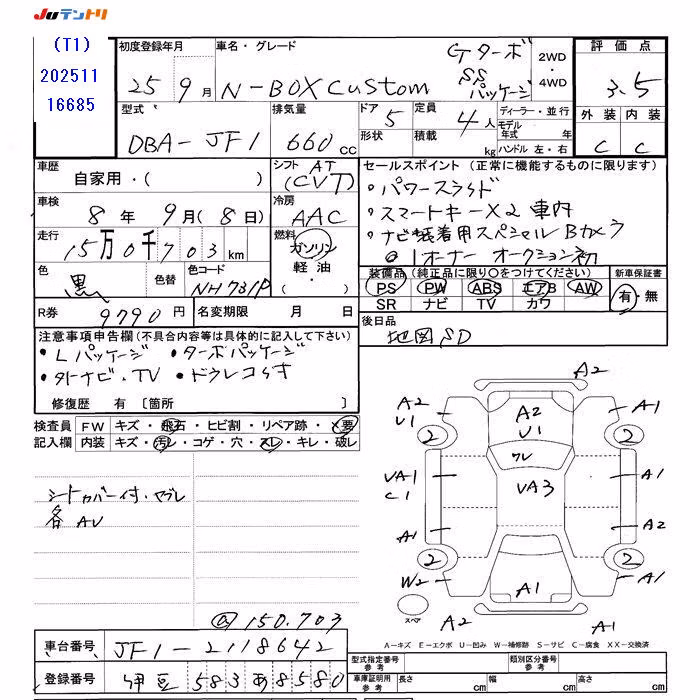 Juテントリ
(T1)
202511
16685
初度登録年月
25 9月
車名・グレード
N-BOX Custom
Gターボ
SS
パッケージ
2WD
・
4WD
評価点
3.5
外装 内装
C C
型式
DBA-JF1
排気量
660cc
ドア 5
形状
定員 4人
積載 kg
ディーラー・並行
モデル
年式 年
ハンドル 左・右
車歴
自家用・( )
シフト AT
(CVT)
セールスポイント (正常に機能するものに限ります)
・パワースライド
・スマートキーX2 車内
・ナビ装着用スペシャル Bカメラ
@1オーナー オークション初
車検
8年 9月(8日)
冷房
AAC
走行
15万0千703km
燃料
ガソリン
軽油・
( )
色
黒
色替
色コード
NH731P
装備品 (純正品に限り○をつけてください)
PS PW ABS エアB AW
SR ナビ TV カワ
新車保証書
有・無
R券 9790円
名変期限 月 日
後日品
地図SD
注意事項申告欄 (不具合内容等は具体的に記入して下さい)
・Lパッケージ ・ターボパッケージ
・外ナビ.TV ・ドラレコらす
修復歴 有 [箇所 ]
検査員
記入欄
FW キズ・飛石・ヒビ割・リペア跡・×要
内装 キズ・汚レ・コゲ・穴・スレ・キレ・破レ
シートカバー付・ヤブレ
各AU
@150.703
A2
A2
U1
A1
2
A2
U1
2
ワレ
VA1
C1
VA3
A1
A1
A2
2
2
W2
A1
A1
スペア
A2
A2
A-キズ E-エクボ U-凹み W-補修跡 S-サビ C-腐食 XX-交換済
車台番号 JF1-2118642
登録番号 伊豆 583 あ 8580
型式指定番号
参考
類別区分番号
参考
車庫証明用
参考
長さ cm
幅 cm
高さ cm